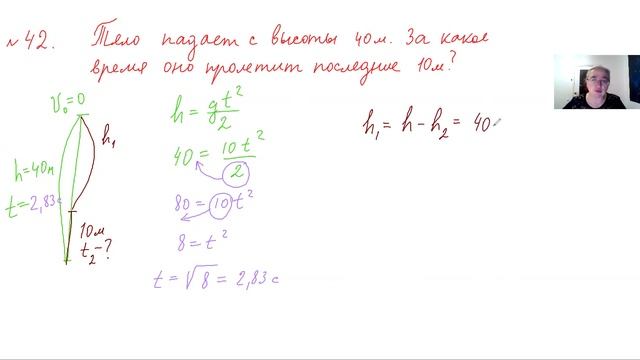 №42. Тело падает с высоты 40м. За какое
время оно пролетит последние 10м?
V₀=0
h₁
h=40м
t=2,83с
10м
t₂-?
h = gt²/2
40 = 10t²/2
80=10t²
8=t²
t=√8=2,83с
h₁=h-h₂=40